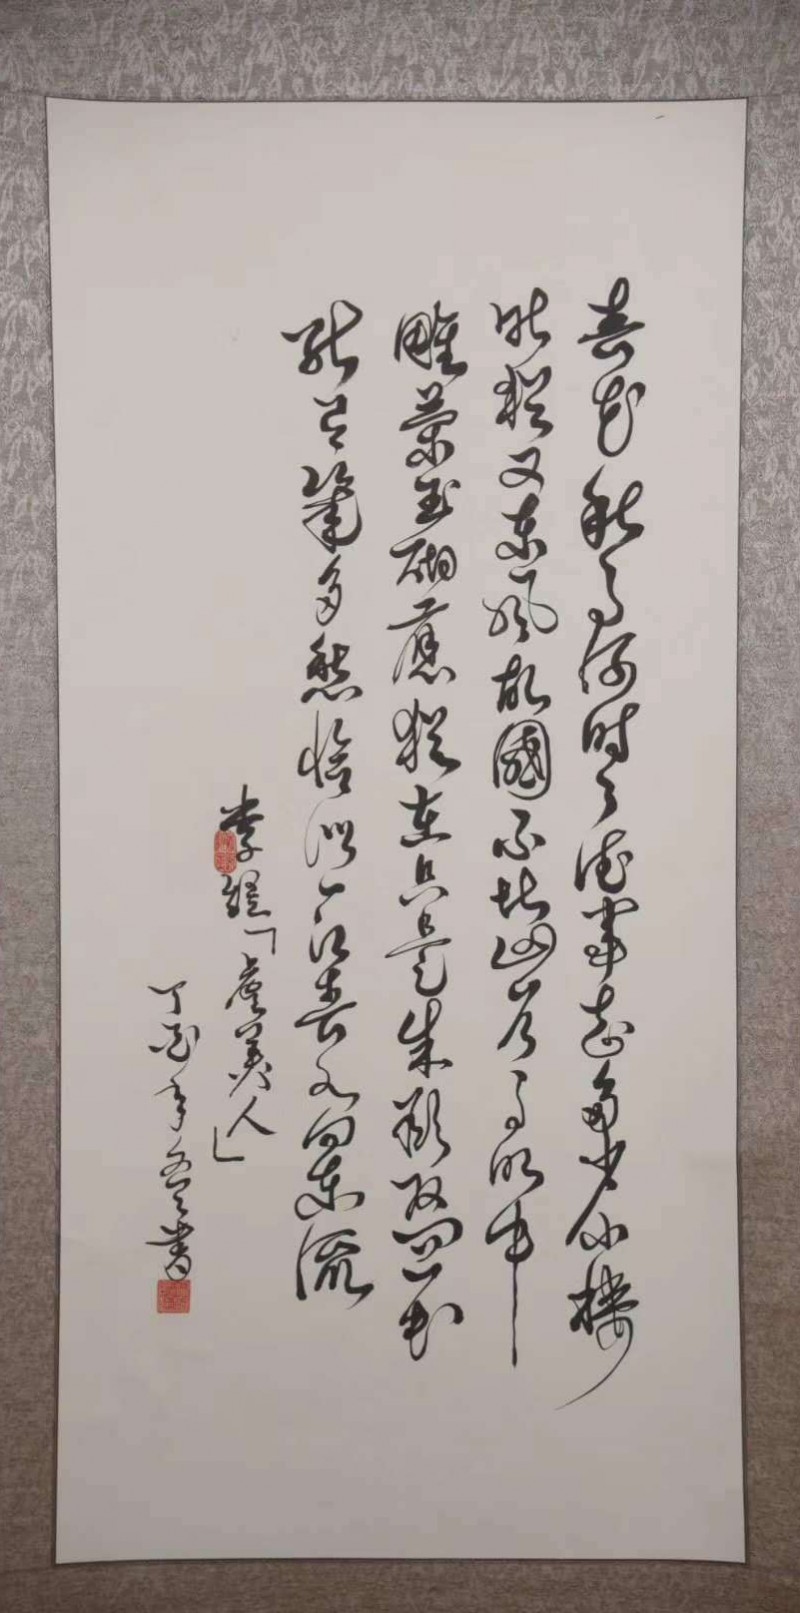 春花秋月何时了往事知多少小楼
昨夜又东风故國不堪回首月明中
雕蘭玉砌應猶在只是朱顏改問君
能有幾多愁恰似一江春水向東流
李煜「虞美人」
丁酉年冬書